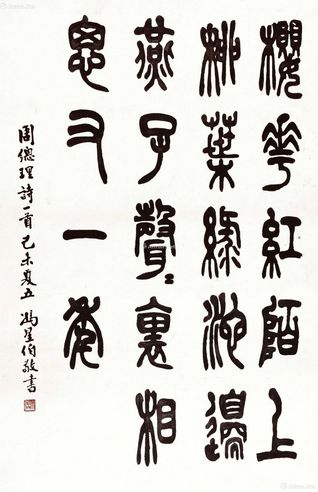 櫻花紅陌上
柳葉緑池邊
燕子聲〻裏相
思又一年
周總理詩一首己未夏五馮星伯敬書